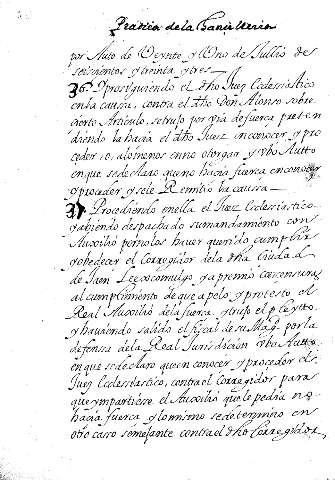 Pratica de la Chancilleria
por Auto de Veynte y Uno de Jullio de
seiscientos y treinta y tres
36. Y prosiguiendo el dho Juez Ecclesiástico
en la caussa, contra el dho Don Alonso sobre
cierto Artículo, se truxo por via de fuerca preten
diendo la hacia el dho Juez en conocer y pro
ceder o, alomenos en no otorgar y vbo Autto
en que se declaro que no hacia fuerca en conocer
y proceder y se le Remitio la caussa
37. Procediendo en ella el Juez Ecclesiastico
y abiendo despachado su mandamiento con
Auxilio por no los haver querido cumplir
y obedecer el Corregidor de la dha Ciudad
de Jaen Le excomulgo y apremio con censuras
al cumplimiento de que apelo y protesto el
Real Auxilio de la fuerza y truxo el pleyto
y haviendo salido el fiscal de su Mag. por la
defensa de la Real Jurisdicion vbo Autto
en que se declaro que en conocer y proceder el
Juez Ecclesiastico, contra el Corregidor para
que ympartiese el Auxilio que le pedia no
hacia fuerca y lo mismo se determino en
otro caso semejante contra el dho Corregidor